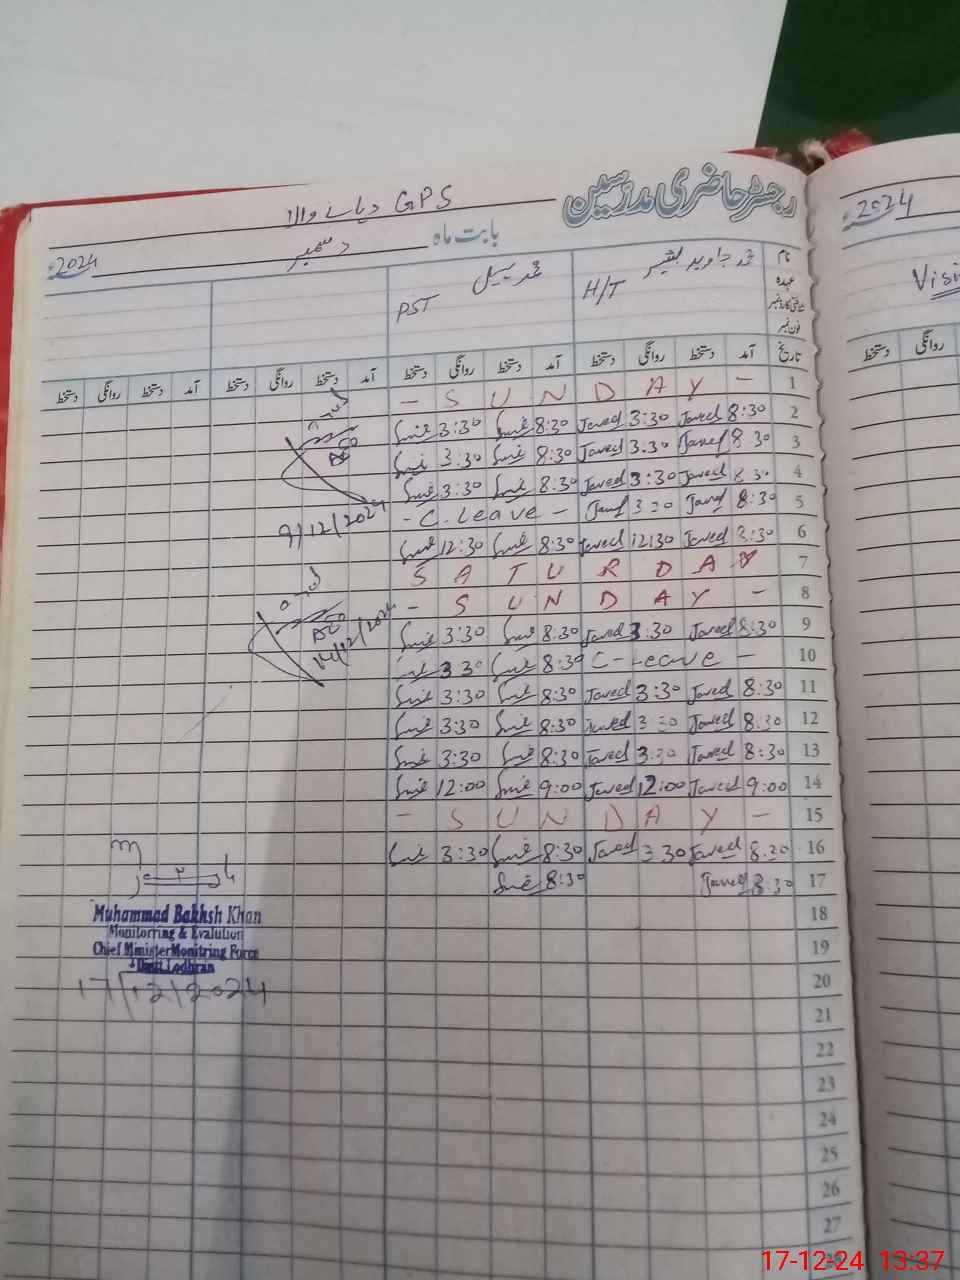 رجسٹر حاضری مدرسین
GPS دیانے والا
بابت ماہ دسمبر 2024
2024
Visi
نام
عہدہ
فون نمبر
محمد جاوید بشیر
H/T
PST
تاریخ آمد دستخط روانگی دستخط آمد دستخط روانگی دستخط آمد دستخط روانگی دستخط آمد دستخط روانگی دستخط
روانگی دستخط
1 - S U N D A Y -
2 8:30 Javed 3:30 Javed 8:30 3:30
3 8:30 Javed 3:30 Javed 8:30 3:30
4 8:30 Javed 3:30 Javed 8:30 3:30
5 8:30 Javed 3:30 Javed - C. Leave -
6 8:30 Javed 12:30 Javed 8:30 12:30
7 S A T U R D A Y
8 - S U N D A Y -
9 8:30 Javed 3:30 Javed 8:30 3:30
10 C-Leave - 8:30 3:30
11 8:30 Javed 3:30 Javed 8:30 3:30
12 8:30 Javed 3:30 Javed 8:30 3:30
13 8:30 Javed 3:30 Javed 8:30 3:30
14 9:00 Javed 12:00 Javed 9:00 12:00
15 - S U N D A Y -
16 8:30 Javed 3:30 Javed 8:30 3:30
17 8:30 Javed 8:30
18
19
20
21
22
23
24
25
26
27
AEO
9/12/2024
AEO
14/12/2024
Muhammad Bakhsh Khan
Monitorring & Evalution
Chief Minister Monitring Force
Distt Lodhran
17/12/2024
17-12-24 13:37